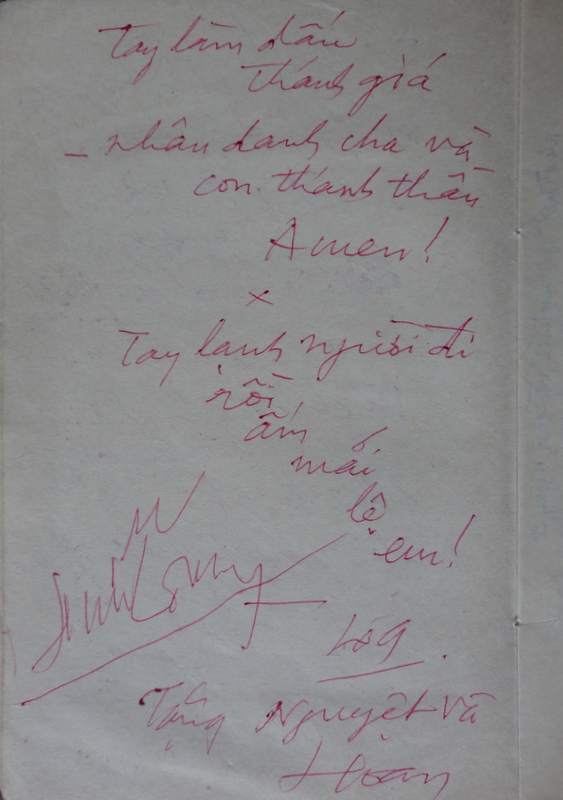 Tay làm dấu
thánh giá
- nhân danh cha và
con thánh thần
Amen!
x
Tay lạnh người đi
rồi
ấm
mái
lệ
em!
Tặng Nguyệt và